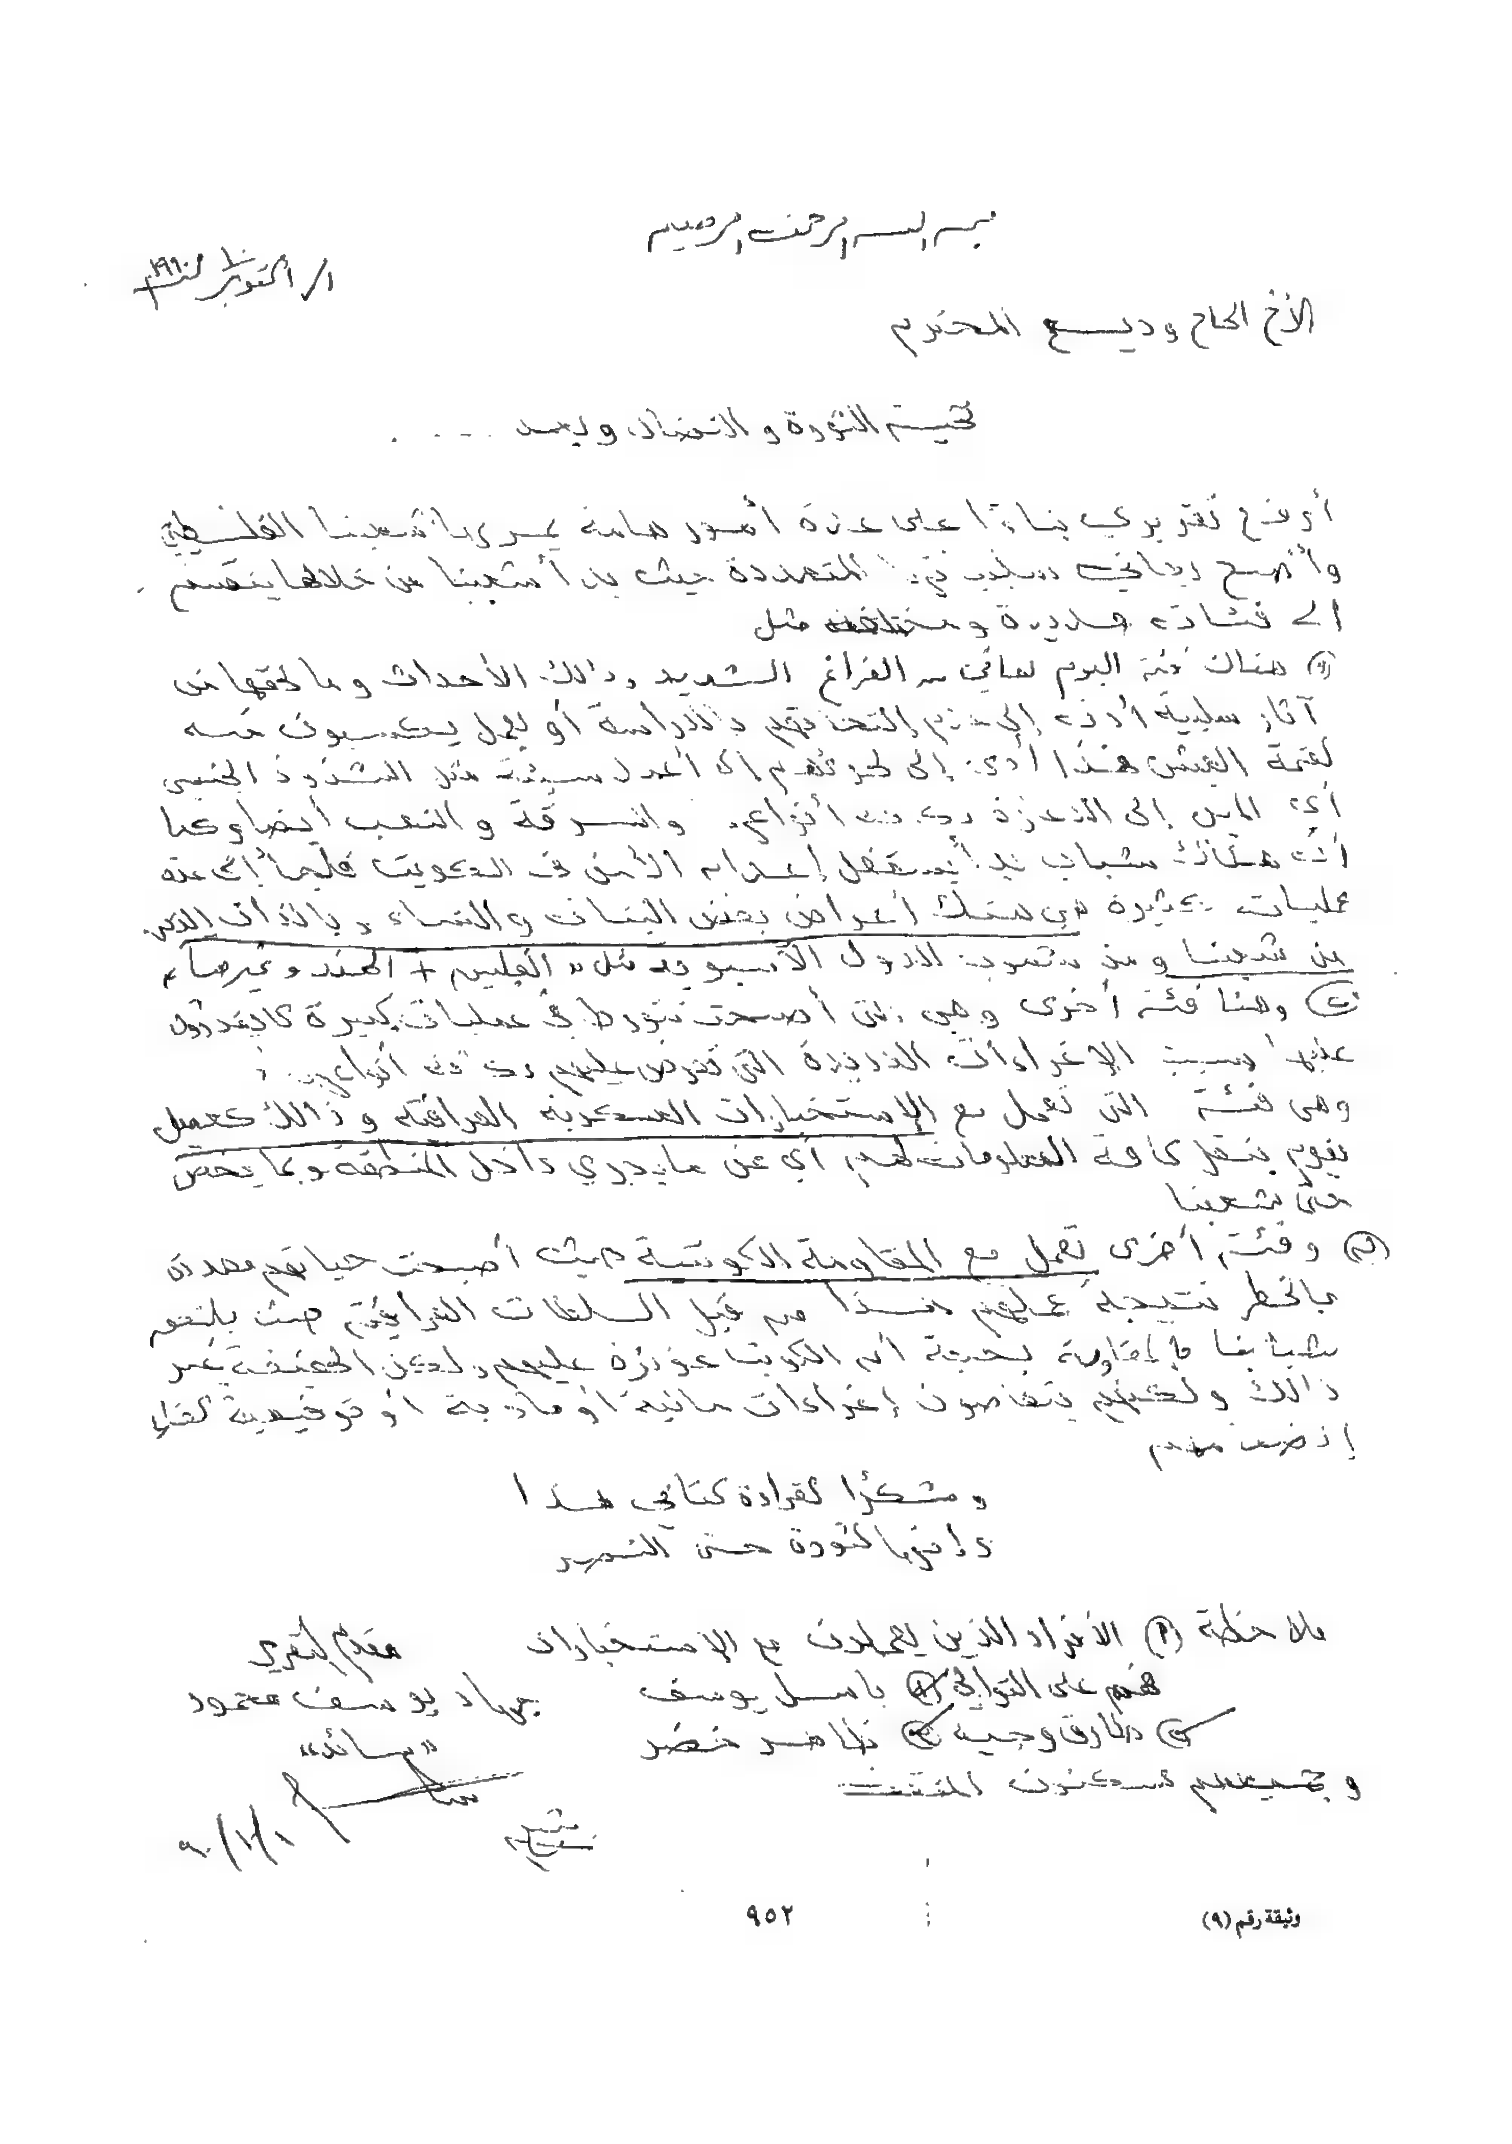 بسم الله الرحمن الرحيم
١/ أكتوبر ١٠ لسنة ١٩٩٠
الأخ الحاج وديع المحترم
تحية الثورة والنضال وبعد ....
أرفع تقريري بناءًا على عدة أمور هامة يمر بها شعبنا الفلسطيني
وأصبح يعاني المتعددة حيث بدأ شعبنا من خلالها ينقسم
الى فئات جديدة ومختلفة مثل
(١) هناك فئة اليوم تعاني من الفراغ الشديد وذلك الأحداث وما لحقها من
آثار سلبية أدت إلى عدم إلتحاقهم بالدراسة أو بعمل يكسبون منه
لقمة العيش هذا أدى إلى لجوئهم إلى أعمال سيئة مثل الشذوذ الجنسي
أي الميل إلى الدعارة بكافة أنواعها والسرقة والنصب أيضا وكما
أن هنالك شباب بدأ يستغل إنعدام الأمن في الكويت قائما في عدة
عمليات كثيرة هي هتك أعراض بعض البنات والنساء وبالذات
من شعبنا ومن شعوب الدول الآسيوية مثل " الفلبين + الهند وغيرها "
(٢) وهنا فئة أخرى وهي التي أصبحت تتورط في عمليات كبيرة لا يقدرون
عليها بسبب الإغراءات العديدة التي تعرض عليهم بكافة أنواعها
وهي فئة التي تعمل مع الإستخبارات العسكرية العراقية وذالك كعميل
يقوم بنقل كافة المعلومات لهم أي عن ما يجري داخل المنطقة وبما يخص
حتى شعبنا
(٣) وفئة أخرى تعمل مع المقاومة الكويتية حيث أصبحت حياتهم مهددة
بالخطر نتيجة عملهم هذا من قبل السلطات العراقية حيث يلتحق
شبابنا بالمقاومة بحجة أن الكويت عزيزة عليهم ولكن الحقيقة غير
ذالك ولكنهم يتقاضون إغراءات مالية أو مادية أو توظيفية لقاء
إنضمامهم
وشكرًا لقراءة كتابي هذا
وإنها لثورة حتى النصر
ملاحظة (١) الأفراد الذين يعملون مع الإستخبارات
فهم على التوالي (١) باسل يوسف
(٢) طارق وجيه (٣) ظاهر خضر
وجميعهم يسكنون النقرة
مقدم التقرير
جهاد يوسف محمود
"سائد"
٩٠/١٠/١
وثيقة رقم (٩)
٩٥٢